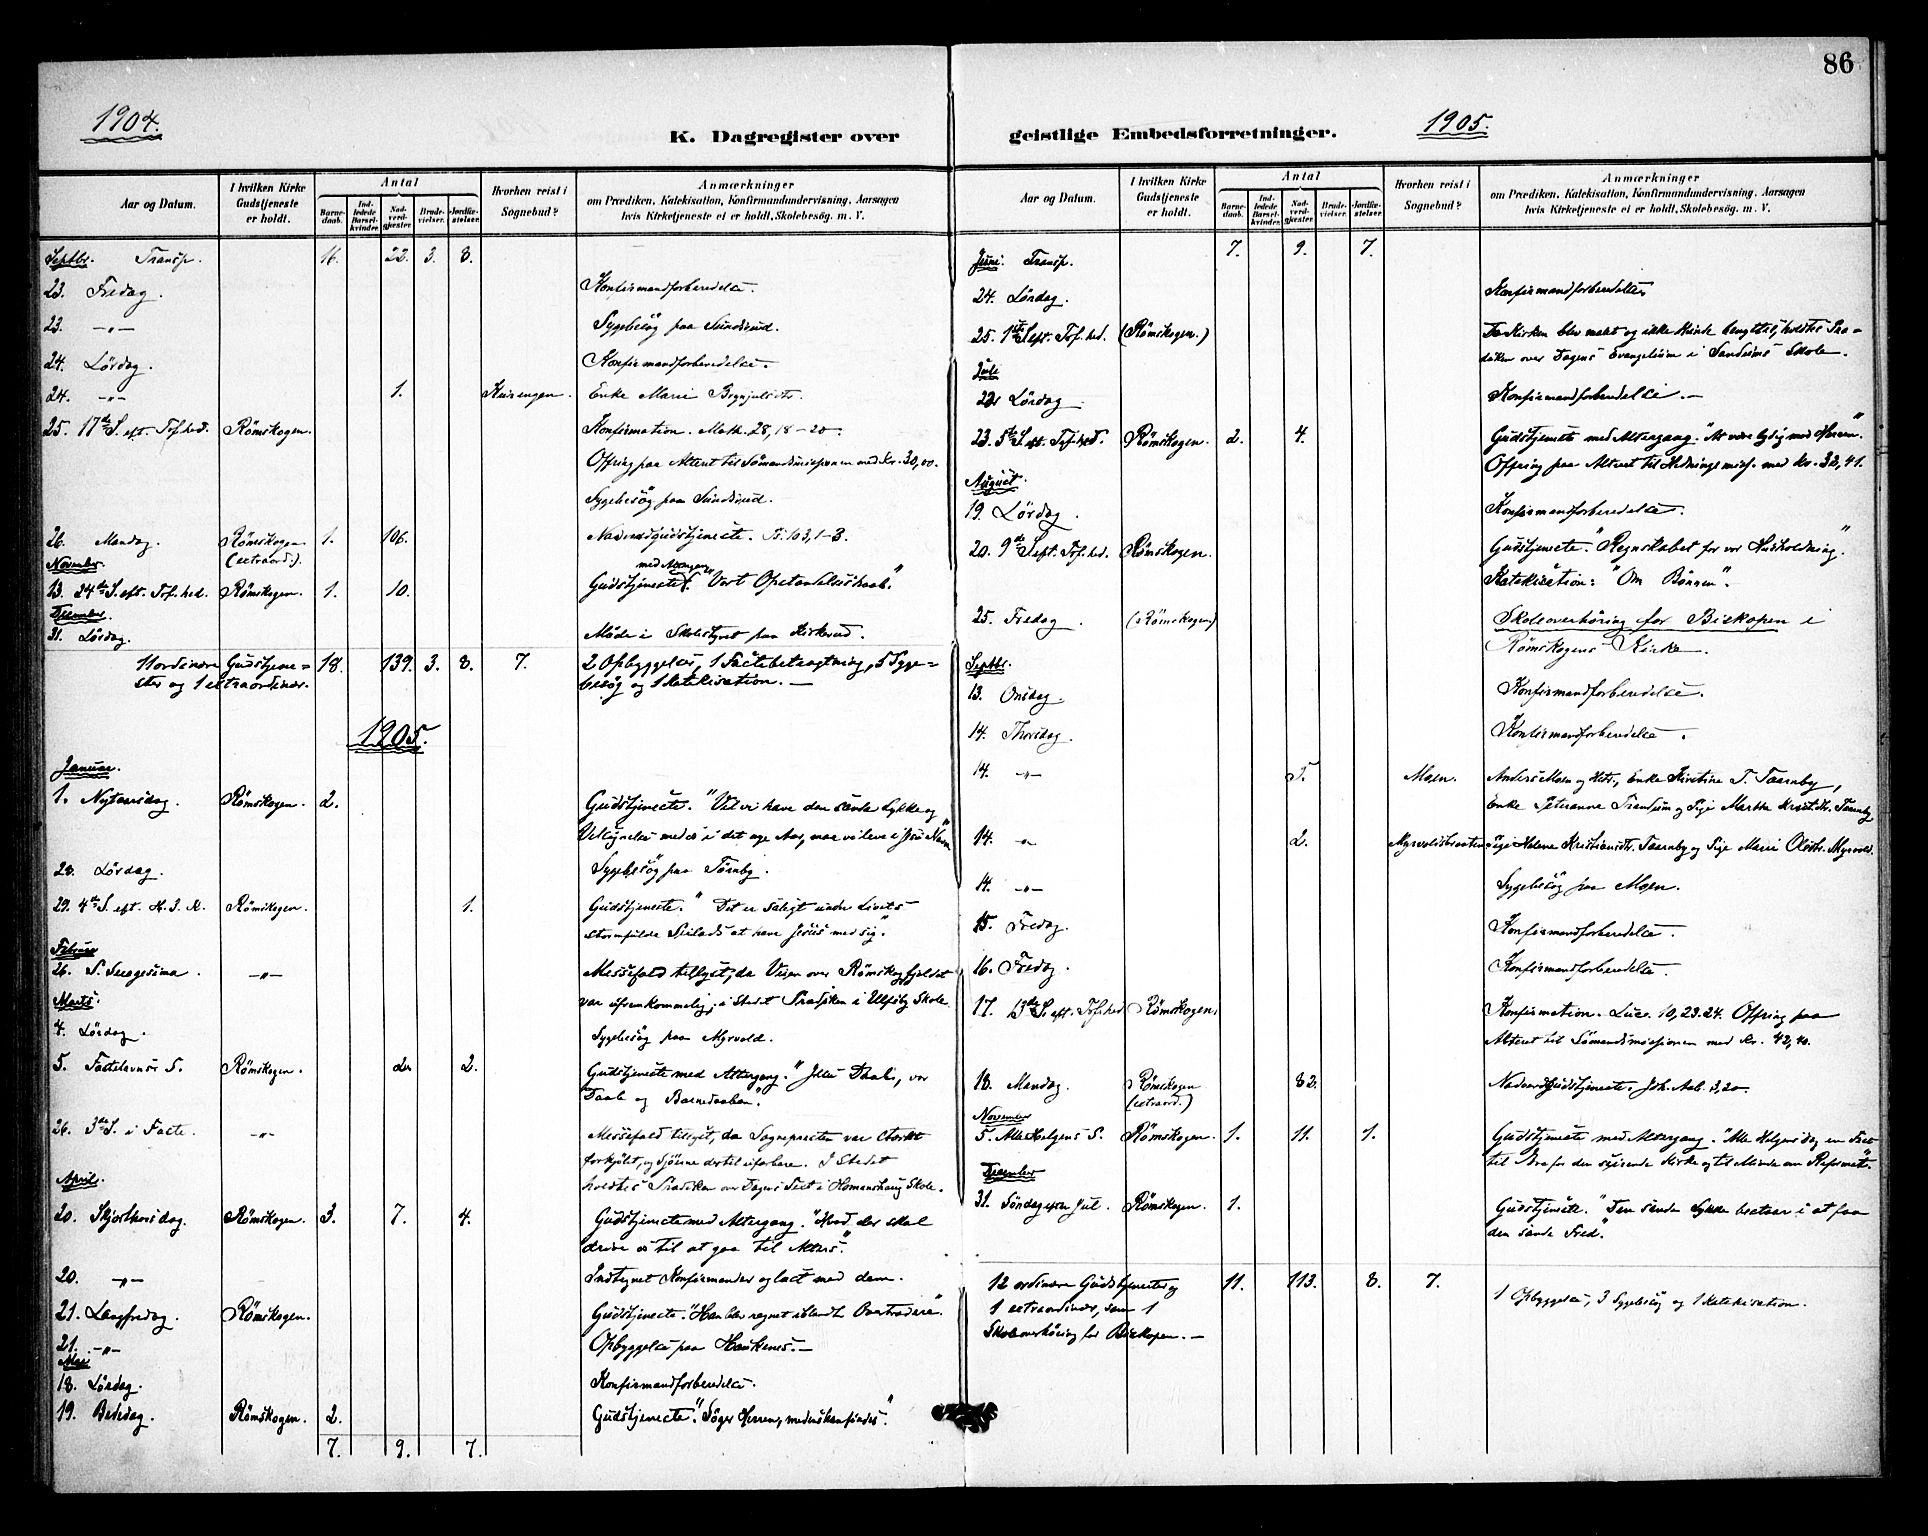 86
1904.
K. Dagregister over
Aar og Datum.
I hvilken Kirke Gudstjeneste er holdt.
Antal
Barnedaab.
Indledede Barselkvinder.
Nadverdgjester.
Brudevielser.
Jordfæstelser.
Hvorhen reist i Sognebud?
Anmærkninger
om Prædiken, Katekisation, Konfirmandundervisning, Aarsagen
hvis Kirketjeneste ei er holdt, Skolebesøg. m. V.
Septbr. Transp. 16. 22. 3. 8.
23. Fredag. Konfirmandforberedelse.
23. -„- Sygebesög paa Sundsrud.
24. Lördag. Konfirmandforberedelse.
24. -„- 1. Enke Marie
25. 17de S. eft. Tref.hed. Römskogen. Konfirmation. Math. 28, 18-20.
Offring paa Alteret til Sömandsmissionen med Kr. 30,00.
Sygebesög paa Sundsrud.
26. Mandag. Römskogen (extraord.). 1. 106. Nadverdgudstjeneste. Ps. 103, 1-3.
November
13. 24de S. eft. Tref.hed. Römskogen. 1. 10. Gudstjeneste med Altergang. "Vort Opstandelseshaab."
December
31. Lördag. Möde i Skolestyret paa Kirkerud.
11 ordinære Gudstjene= 18. 139. 3. 8. 7. 2 Opbyggelser, 1 Fastebetragtning, 5 Syge=
ster og 1 extraordinær. besög og 1 Katekisation. —
1905.
Januar.
1. Nytaarsdag. Römskogen. 2. Gudstjeneste. "Vil vi have den sande Lykke og
Velsignelse med os i det nye Aar, maa vi leve i Jesu Navn."
28. Lördag. Sygebesög paa Törnby.
29. 4de S. eft. H. 3. K. Römskogen. 1. Gudstjeneste. "Det er saligt under Livets
stormfulde Seilads at have Jesus med sig."
Februar
26. S. Sexagesima. -„- Messefald tillyst, da Veien over Römskogfjeldet
var ufremkommelig, i Stedet Prædiken i Ulfsby Skole.
Marts.
4. Lördag. Sygebesög paa Myrvold.
5. Fastelavns S. Römskogen. 2. 2. Gudstjeneste med Altergang. "Jesu Daab, vor
Daab og Barnedaaben."
26. 3die S. i Faste. -„- Messefald tillyst, da Sognepresten var stærkt
forkjölet, og Sjöerne dertil ufarbare. I Stedet
holdtes Prædiken over Dagens Text i Homanshaug Skole.
April.
20. Skjærthorsdag. Römskogen. 3. 7. 4. Gudstjeneste med Altergang. "Hvad der skal
drive os til at gaa til Alters."
20. -„- Indtegnet Konfirmander og læst med dem.
21. Langfredag. Römskogen. Gudstjeneste. "Han blev regnet iblandt Overtrædere".
21. -„- Opbyggelse paa Haukenes. —
Mai
18. Lördag. Konfirmandforberedelse.
19. Bededag. Römskogen. 2. Gudstjeneste. "Söger Herren, medens han findes".
7. 9. 7.
geistlige Embedsforretninger.
1905.
Aar og Datum.
I hvilken Kirke Gudstjeneste er holdt.
Antal
Barnedaab.
Indledede Barselkvinder.
Nadverdgjester.
Brudevielser.
Jordfæstelser.
Hvorhen reist i Sognebud?
Anmærkninger
om Prædiken, Katekisation, Konfirmandundervisning, Aarsagen
hvis Kirketjeneste ei er holdt, Skolebesøg. m. V.
Juni. Transp. 7. 9. 7.
24. Lördag. Konfirmandforberedelse.
25. 1ste S. eft. Tref.hed. (Römskogen.) Da Kirken blev malt og ikke kunde benyttes, holdtes Præ=
diken over Dagens Evangelium i Sandsims Skole.
Juli
22. Lördag. Konfirmandforberedelse. —
23. 5te S. eft. Tref.hed. Römskogen. 2. 4. Gudstjeneste med Altergang. "At være lydig mod Herren."
Offring paa Alteret til Hedningemiss. med Kr. 33,41.
August.
19. Lördag. Konfirmandforberedelse.
20. 9de S. eft. Tref.hed. Römskogen. Gudstjeneste. "Regnskabet for vor Husholdning."
Katekisation: "Om Bönnen".
25. Fredag. (Römskogen) Skoleoverhöring for Biskopen i
Römskogens Kirke.
Septbr.
13. Onsdag. Konfirmandforberedelse.
14. Thorsdag. Konfirmandforberedelse.
14. -„- 5. Moen. Anders Moen og Hstr., Enke Kirstine T. Taarnby,
Enke Peteranne Trandsum og Pige Martha Taarnby
14. „ 2. Myrvoldsbraaten Pige Helene Kristiansdtr. Taarnby og Pige Marie Olsdtr. Myrvold.
14. -„- Sygebesög paa Moen.
15. Fredag. Konfirmandforberedelse.
16. Fredag. Konfirmandforberedelse.
17. 13de S. eft. Tref.hed Römskogen. Konfirmation. Luc. 10, 23.24. Offring paa
Alteret til Sömandsmissionen med Kr. 42,40.
18. Mandag. Römskogen (extraord.) 82. Nadverdgudstjeneste. Joh. Aab. 3,20.
November
5. Alle Helgens S. Römskogen. 1. 11. 1. Gudstjeneste med Altergang. "Alle Helgensdag en Fest
til Ære for den seirende Kirke og til Minde om Reformat."
December
31. Söndag efter Jul. Römskogen. 1. Gudstjeneste. "Den sande Lykke bestaar i at faa
den sande Fred".
12 ordinære Gudstjenester og 11. 113. 8. 7. 1 Opbyggelse, 3 Sygebesög og 1 Katekisation.
1 extraordinær, samt 1
Skoleoverhöring for Biskopen. —